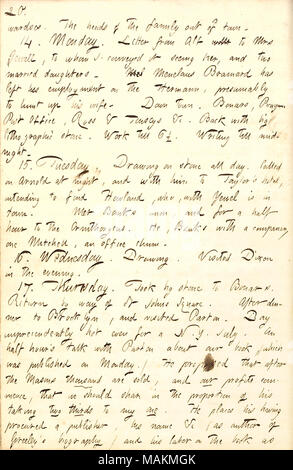 20.
wardses. The heads of the family out of town.
14. Monday. Letter from Alf to Mrs
Jewell, to whom I conveyed it seeing her, and two
married daughters. Menelaus Brainard has
left his employment on the Hermann, presumably
to hunt up his wife. Down town. Bonars,
Post Office, Ross & Touseys &c. Back with big
lithographic stone. Work till 6½. Writing till mid-
night.
15. Tuesday. Drawing on stone all day. Called
on Arnold at night, and with him to Taylor's hotel,
intending to find Howland, who, with Jewell is in
town. Met Banks and for a half
hour to the Ornithorhyncus. He, Banks with a companion,
one Mitchell, an office chum.
16. Wednesday. Drawing. Visited Dixon
in the evening.
17. Thursday. Took big stone to Bonars.
Return by way of St Johns Square. After din-
ner to Brooklyn, and visited Parton. Day
unprecedentedly hot even for N. Y. July. An
half hour's talk with Parton about our book (which
was published on Monday.) He proposed that after
the Masons thousand are sold, and our profits com-
mence, that it should share in the proportion of his
taking two thirds to my one. He places his having
procured a publisher, his name &c (as author of
Greeley's biography) and his labor on the book as